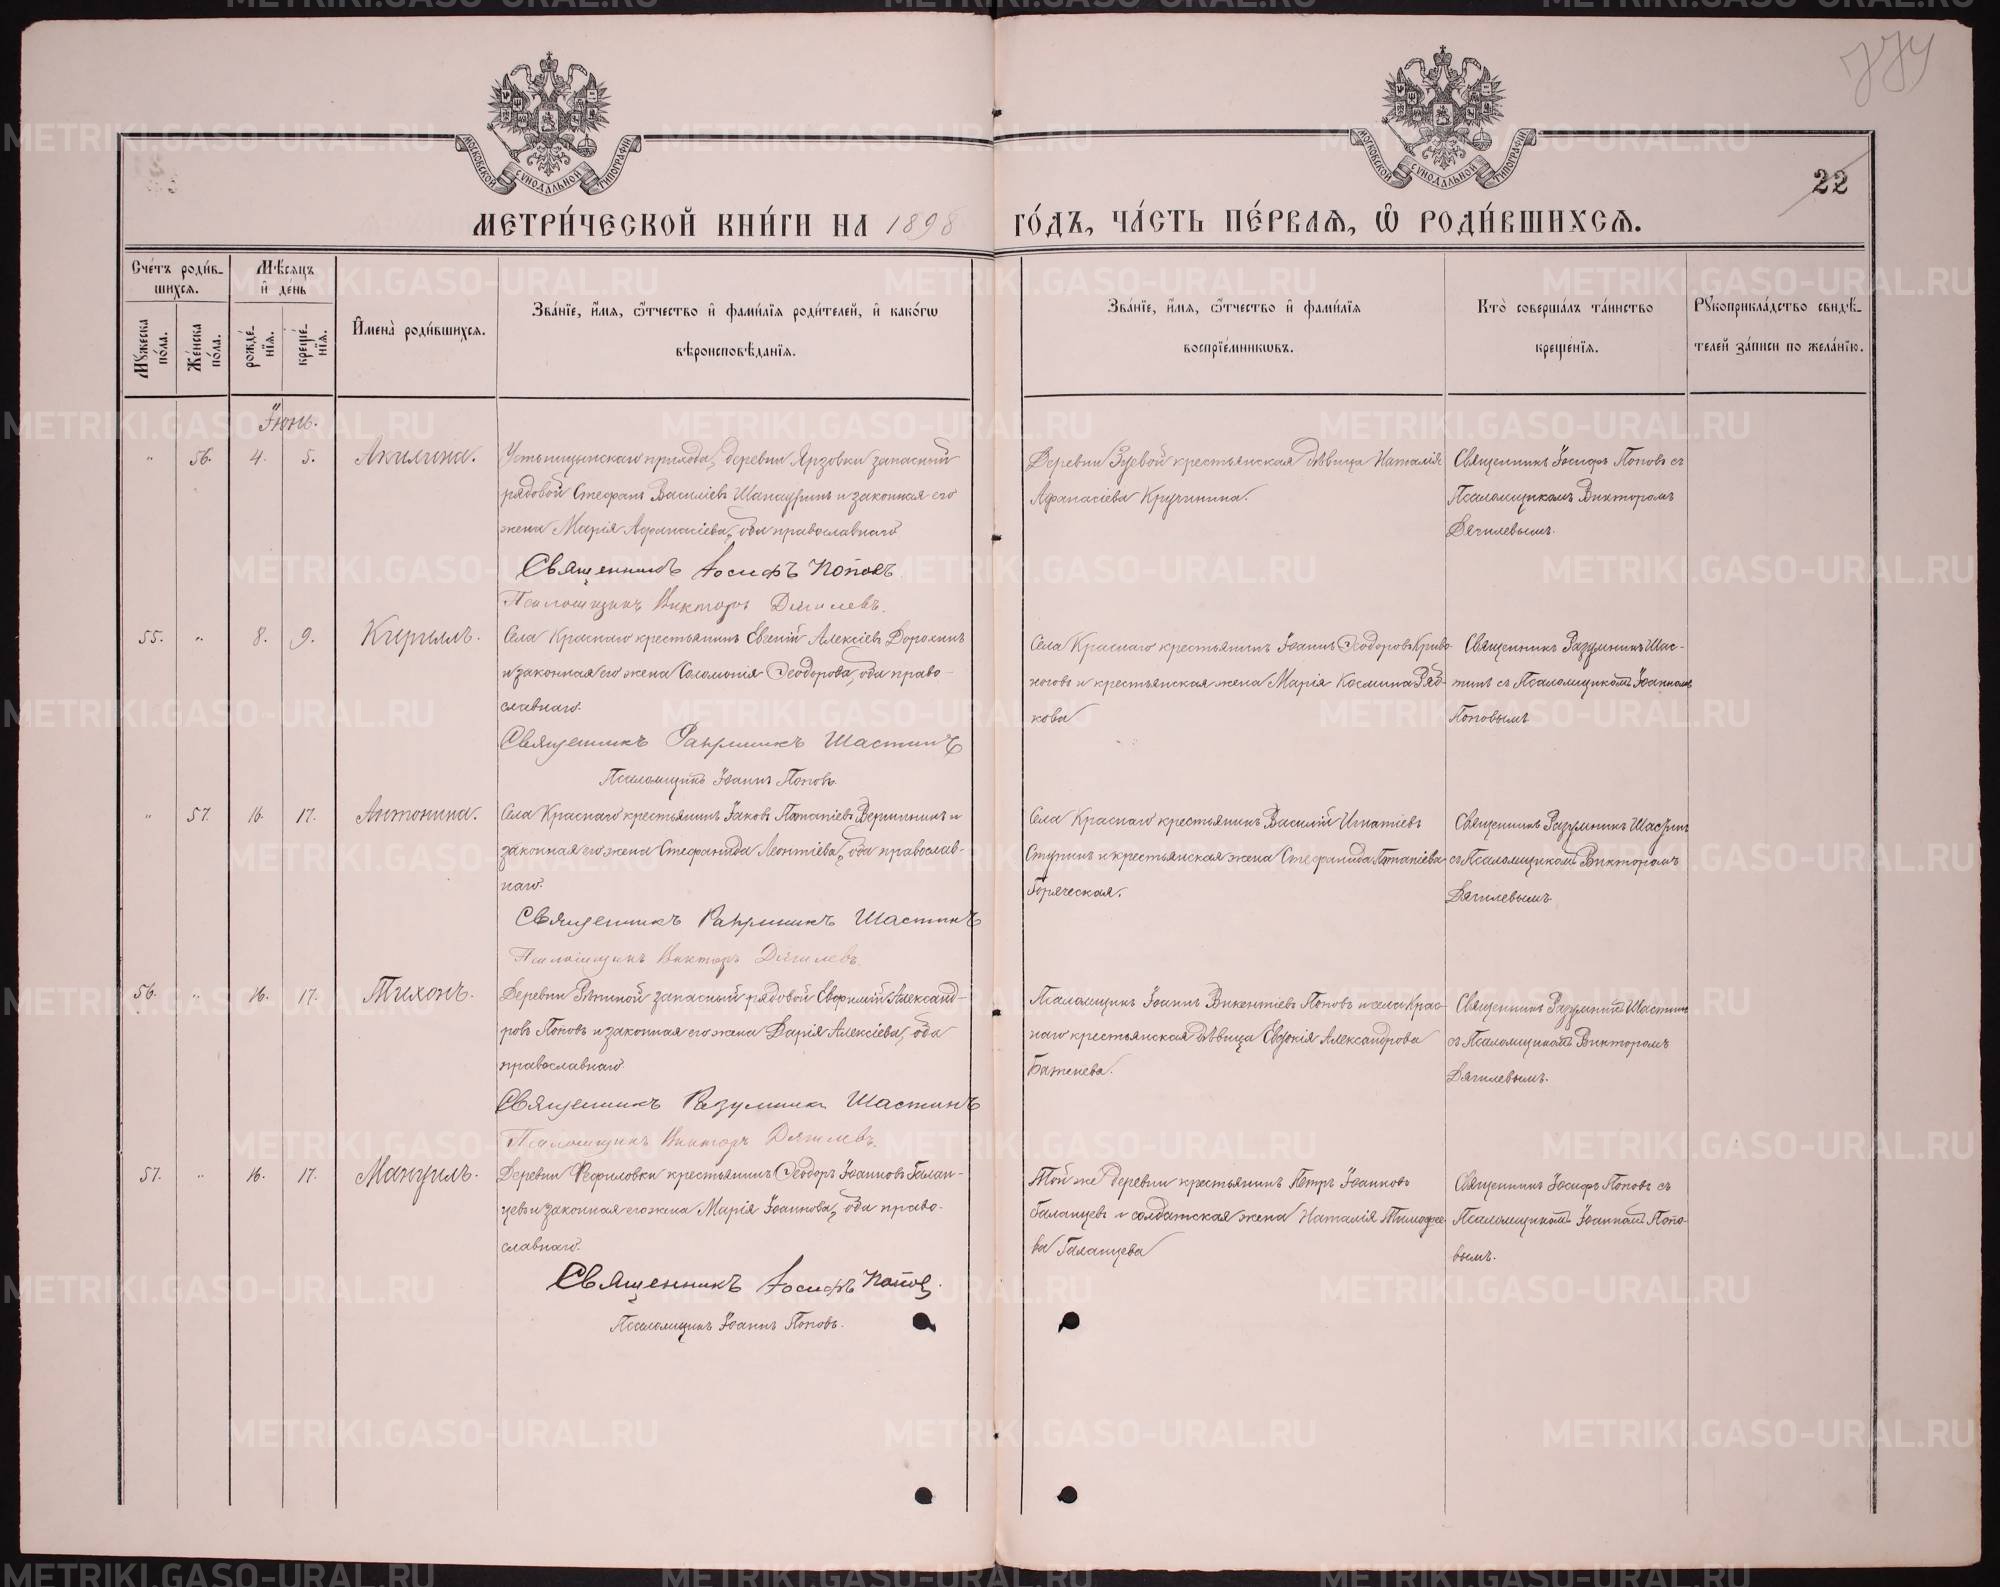 774
22
МОСКОВСКОЙ СѴНОДАЛЬНОЙ ТИПОГРАФІИ
МОСКОВСКОЙ СѴНОДАЛЬНОЙ ТИПОГРАФІИ
МЕТРИ́ЧЕСКОЙ КНИ́ГИ НА 1898 ГО́ДЪ, ЧА́СТЬ ПЕ́РВАЯ, Ѡ РОДИ́ВШИХСЯ.
Сче́тъ роди́в-
шихся.
Мѣ́сяцъ
и де́нь
Мꙋ́жеска по́ла.
Же́нска по́ла.
рожде́-нїя.
креще́-нїя.
Имена̀ роди́вшихся.
Зва́нїе, и́мя, ѻ҆́тчество и фами́лїя роди́телей, и како́гѡ
вѣроисповѣ́данїя.
Зва́нїе, и́мя, ѻ҆́тчество и фами́лїя
воспрїе́мникѡвъ.
Кто̀ соверша́лъ та́инство
креще́нїя.
Рꙋкоприкла́дство свидѣ́-
телей за́писи по жела́нїю.
Іюнь.
" 56. 4. 5. Акилина.
Устьницынскаго прихода, деревни Ярзовки запасный
рядовой Стефанъ Василіевъ и законная его
жена Марія Афанасіева, оба православнаго
Священникъ Іосифъ Поповъ
Псаломщикъ Викторъ Дягилевъ.
Деревни Зуевой крестьянская дѣвица Наталія
Афанасіева Кручинина.
Священникъ Іосифъ Поповъ съ
Псаломщикомъ Викторомъ
Дягилевымъ.
55. " 8. 9. Кириллъ.
Села Краснаго крестьянинъ Евгеній Алексіевъ Дорохинъ
и законная его жена Соломонія Ѳеодорова, оба право-
славнаго.
Священникъ Разумникъ Шастинъ
Псаломщикъ Іоаннъ Поповъ
Села Краснаго крестьянинъ Іоаннъ Ѳеодоровъ Криво-
ноговъ и крестьянская жена Марія Космина Ряб-
кова
Священникъ Разумникъ Шас-
тинъ съ Псаломщикомъ Іоанномъ
Поповымъ
" 57. 16. 17. Антонина.
Села Краснаго крестьянинъ Іаковъ Потапіевъ Вершининъ и
законная его жена Стефанида Леонтіева, оба православ-
наго.
Священникъ Разумникъ Шастинъ
Псаломщикъ Викторъ Дягилевъ.
Села Краснаго крестьянинъ Василій Игнатіевъ
Ступинъ и крестьянская жена Стефанида Потапіева
Горяческая.
Священникъ Разумникъ Шастинъ
съ Псаломщикомъ Викторомъ
Дягилевымъ
56. " 16. 17. Тихонъ.
Деревни Рѣпиной запасный рядовой Евфимій Александ-
ровъ Поповъ и законная его жена Дарія Алексіева, оба
православнаго.
Священникъ Разумникъ Шастинъ
Псаломщикъ Викторъ Дягилевъ.
Псаломщикъ Іоаннъ Викентіевъ Поповъ и села Крас-
наго крестьянская дѣвица Евдокія Александрова
Баженева.
Священникъ Разумникъ Шастинъ
съ Псаломщикомъ Викторомъ
Дягилевымъ.
57. " 16. 17. Мануилъ.
Деревни Ѳефиловки крестьянинъ Ѳеодоръ Іоанновъ Галан-
цевъ и законная его жена Марія Іоаннова, оба право-
славнаго.
Священникъ Іосифъ Поповъ.
Псаломщикъ Іоаннъ Поповъ.
Той же деревни крестьянинъ Петръ Іоанновъ
Галанцевъ и солдатская жена Наталія Тимофее-
ва Галанцева
Священникъ Іосифъ Поповъ съ
Псаломщикомъ Іоанномъ Попо-
вымъ.
METRIKI.GASO-URAL.RU